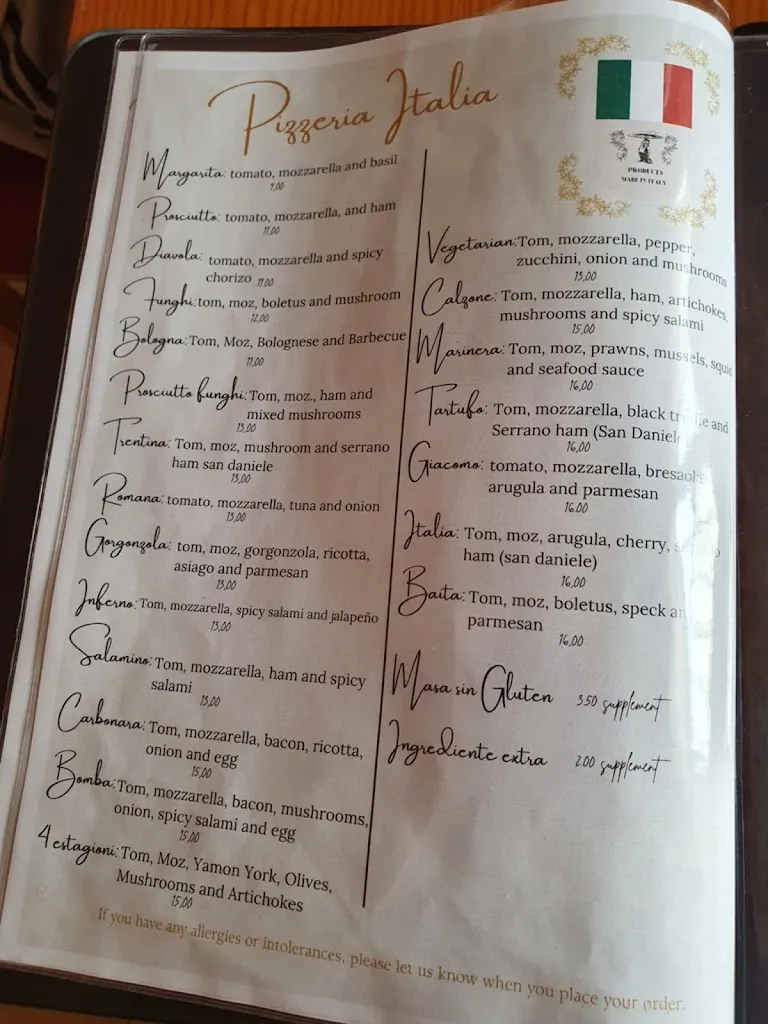 Pizzeria Italia
PRODUCTS
MADE IN ITALY
Margarita: tomato, mozzarella and basil
9,00
Prosciutto: tomato, mozzarella, and ham
11,00
Diavola: tomato, mozzarella and spicy
chorizo 11,00
Funghi: tom, moz, boletus and mushroom
12,00
Bologna: Tom, Moz, Bolognese and Barbecue
11,00
Prosciutto funghi: Tom, moz., ham and
mixed mushrooms
13,00
Trentina: Tom, moz, mushroom and serrano
ham san daniele
13,00
Romana: tomato, mozzarella, tuna and onion
13,00
Gorgonzola: tom, moz, gorgonzola, ricotta,
asiago and parmesan
13,00
Inferno: Tom, mozzarella, spicy salami and jalapeño
13,00
Salamino: Tom, mozzarella, ham and spicy
salami
13,00
Carbonara: Tom, mozzarella, bacon, ricotta,
onion and egg
15,00
Bomba: Tom, mozzarella, bacon, mushrooms,
onion, spicy salami and egg
15,00
4 estagioni: Tom, Moz, Yamon York, Olives,
Mushrooms and Artichokes
15,00
Vegetarian: Tom, mozzarella, pepper,
zucchini, onion and mushrooms
13,00
Calzone: Tom, mozzarella, ham, artichokes,
mushrooms and spicy salami
15,00
Marinera: Tom, moz, prawns, mussels, squid
and seafood sauce
16,00
Tartufo: Tom, mozzarella, black and
Serrano ham (San Daniele
16,00
Giacomo: tomato, mozzarella, bresaola
arugula and parmesan
16.00
Italia: Tom, moz, arugula, cherry,
ham (san daniele)
16,00
Baita: Tom, moz, boletus, speck an
parmesan
16,00
Masa sin Gluten 3.50 supplement
Ingrediente extra 2.00 supplement
If you have any allergies or intolerances, please let us know when you place your order.